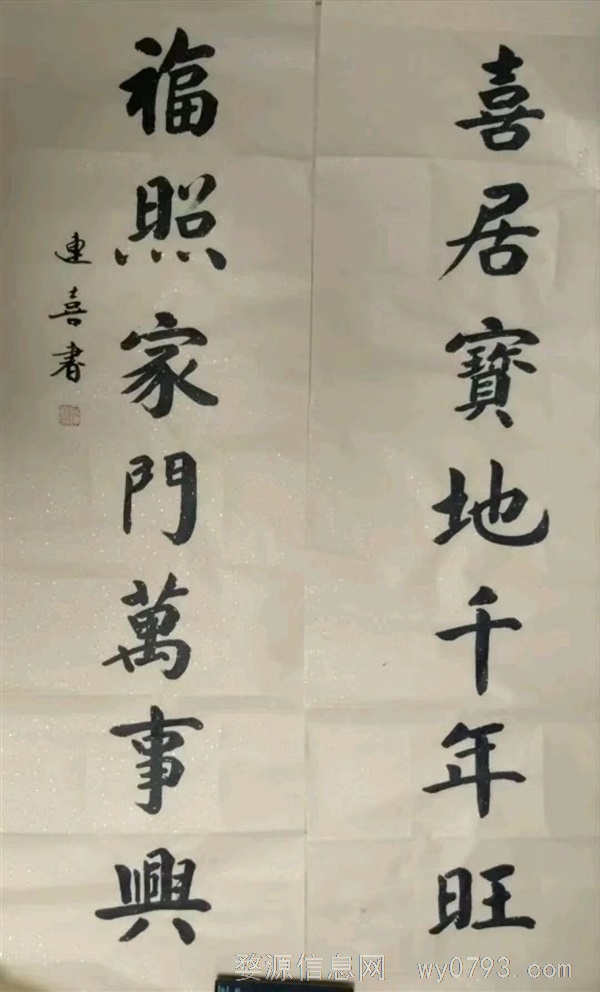 喜居寳地千年旺
福照家門萬事興
連喜書
婺源信息网 wy0793.com